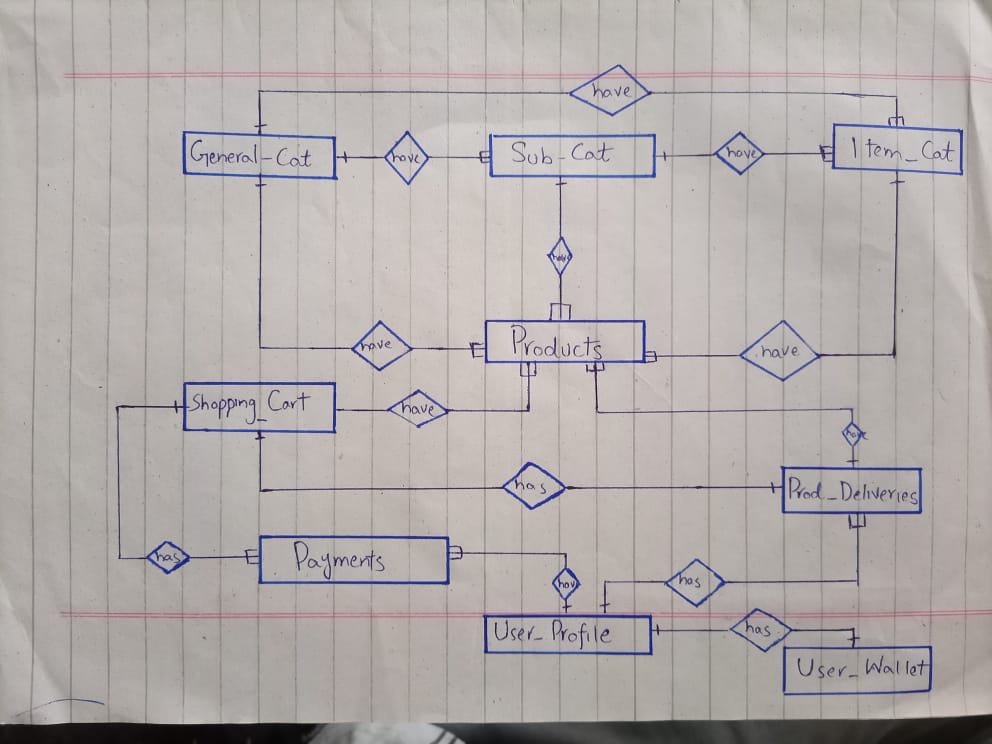 have
General-Cat
have
Sub-Cat
have
Item_Cat
have
have
Products
have
Shopping_Cart
have
have
has
Prod_Deliveries
has
Payments
have
has
User_Profile
has
User_Wallet